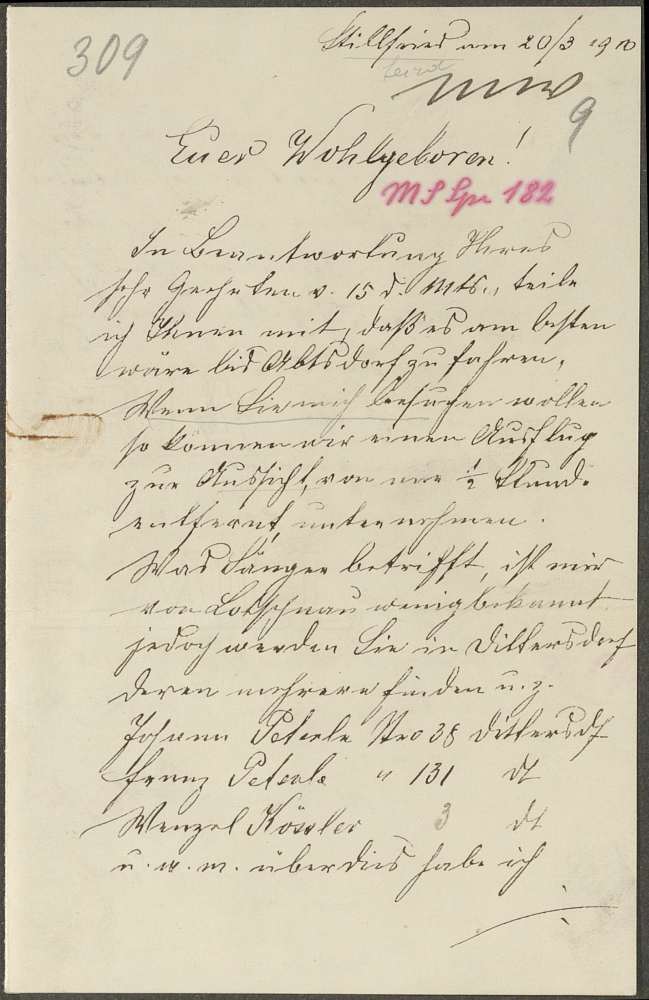 309
Stillfried am 20/3 1910
9
Euer Wohlgeboren!
MS Spr 182
In Beantwortung Ihres
sehr Geehrten v. 15 d. Mts., teile
ich Ihnen mit, daß es am besten
wäre bis Abtsdorf zu fahren,
Wenn Sie mich besuchen wollen
so können wir einen Ausflug
zur Aussicht, von nur ½ Stund.
entfernt, unternehmen.
Was Sänger betrifft, ist mir
von Lotschnau wenig bekannt
jedoch werden Sie in Dittersdorf
deren mehrere finden u. z.
Johann Peterle Nro 38 Dittersdf
Franz Peterle " 131 dt
Wenzel Kössler 3 dt
u. a. m. überdies habe ich